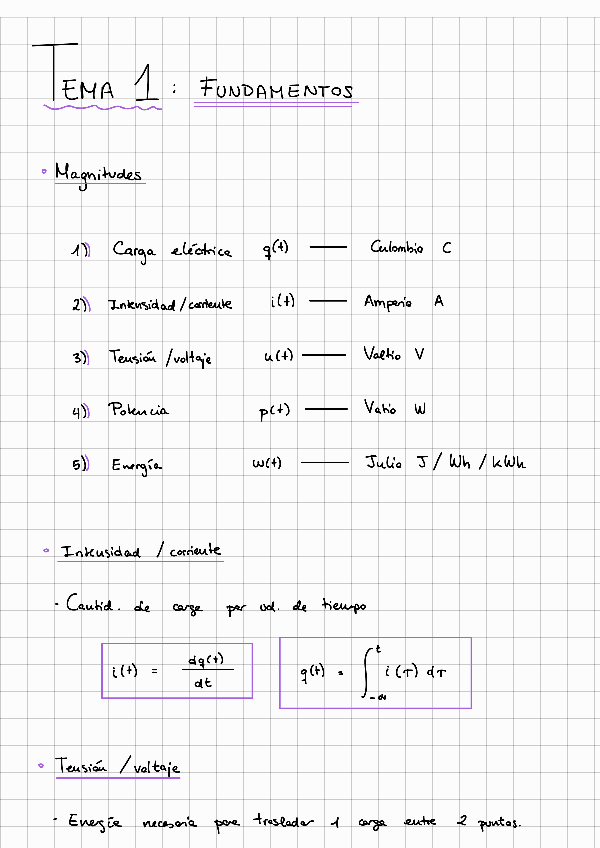 TEMA 1 : FUNDAMENTOS
• Magnitudes
1) Carga eléctrica q(t) — Culombio C
2) Intensidad / corriente i(t) — Amperio A
3) Tensión / voltaje u(t) — Voltio V
4) Potencia p(t) — Vatio W
5) Energía w(t) — Julio J / Wh / kWh
• Intensidad / corriente
- Cantid. de carga por ud. de tiempo
i(t) = dq(t) / dt    q(t) = ∫_{-∞}^{t} i(τ) dτ
• Tensión / voltaje
- Energía necesaria para trasladar 1 carga entre 2 puntos.